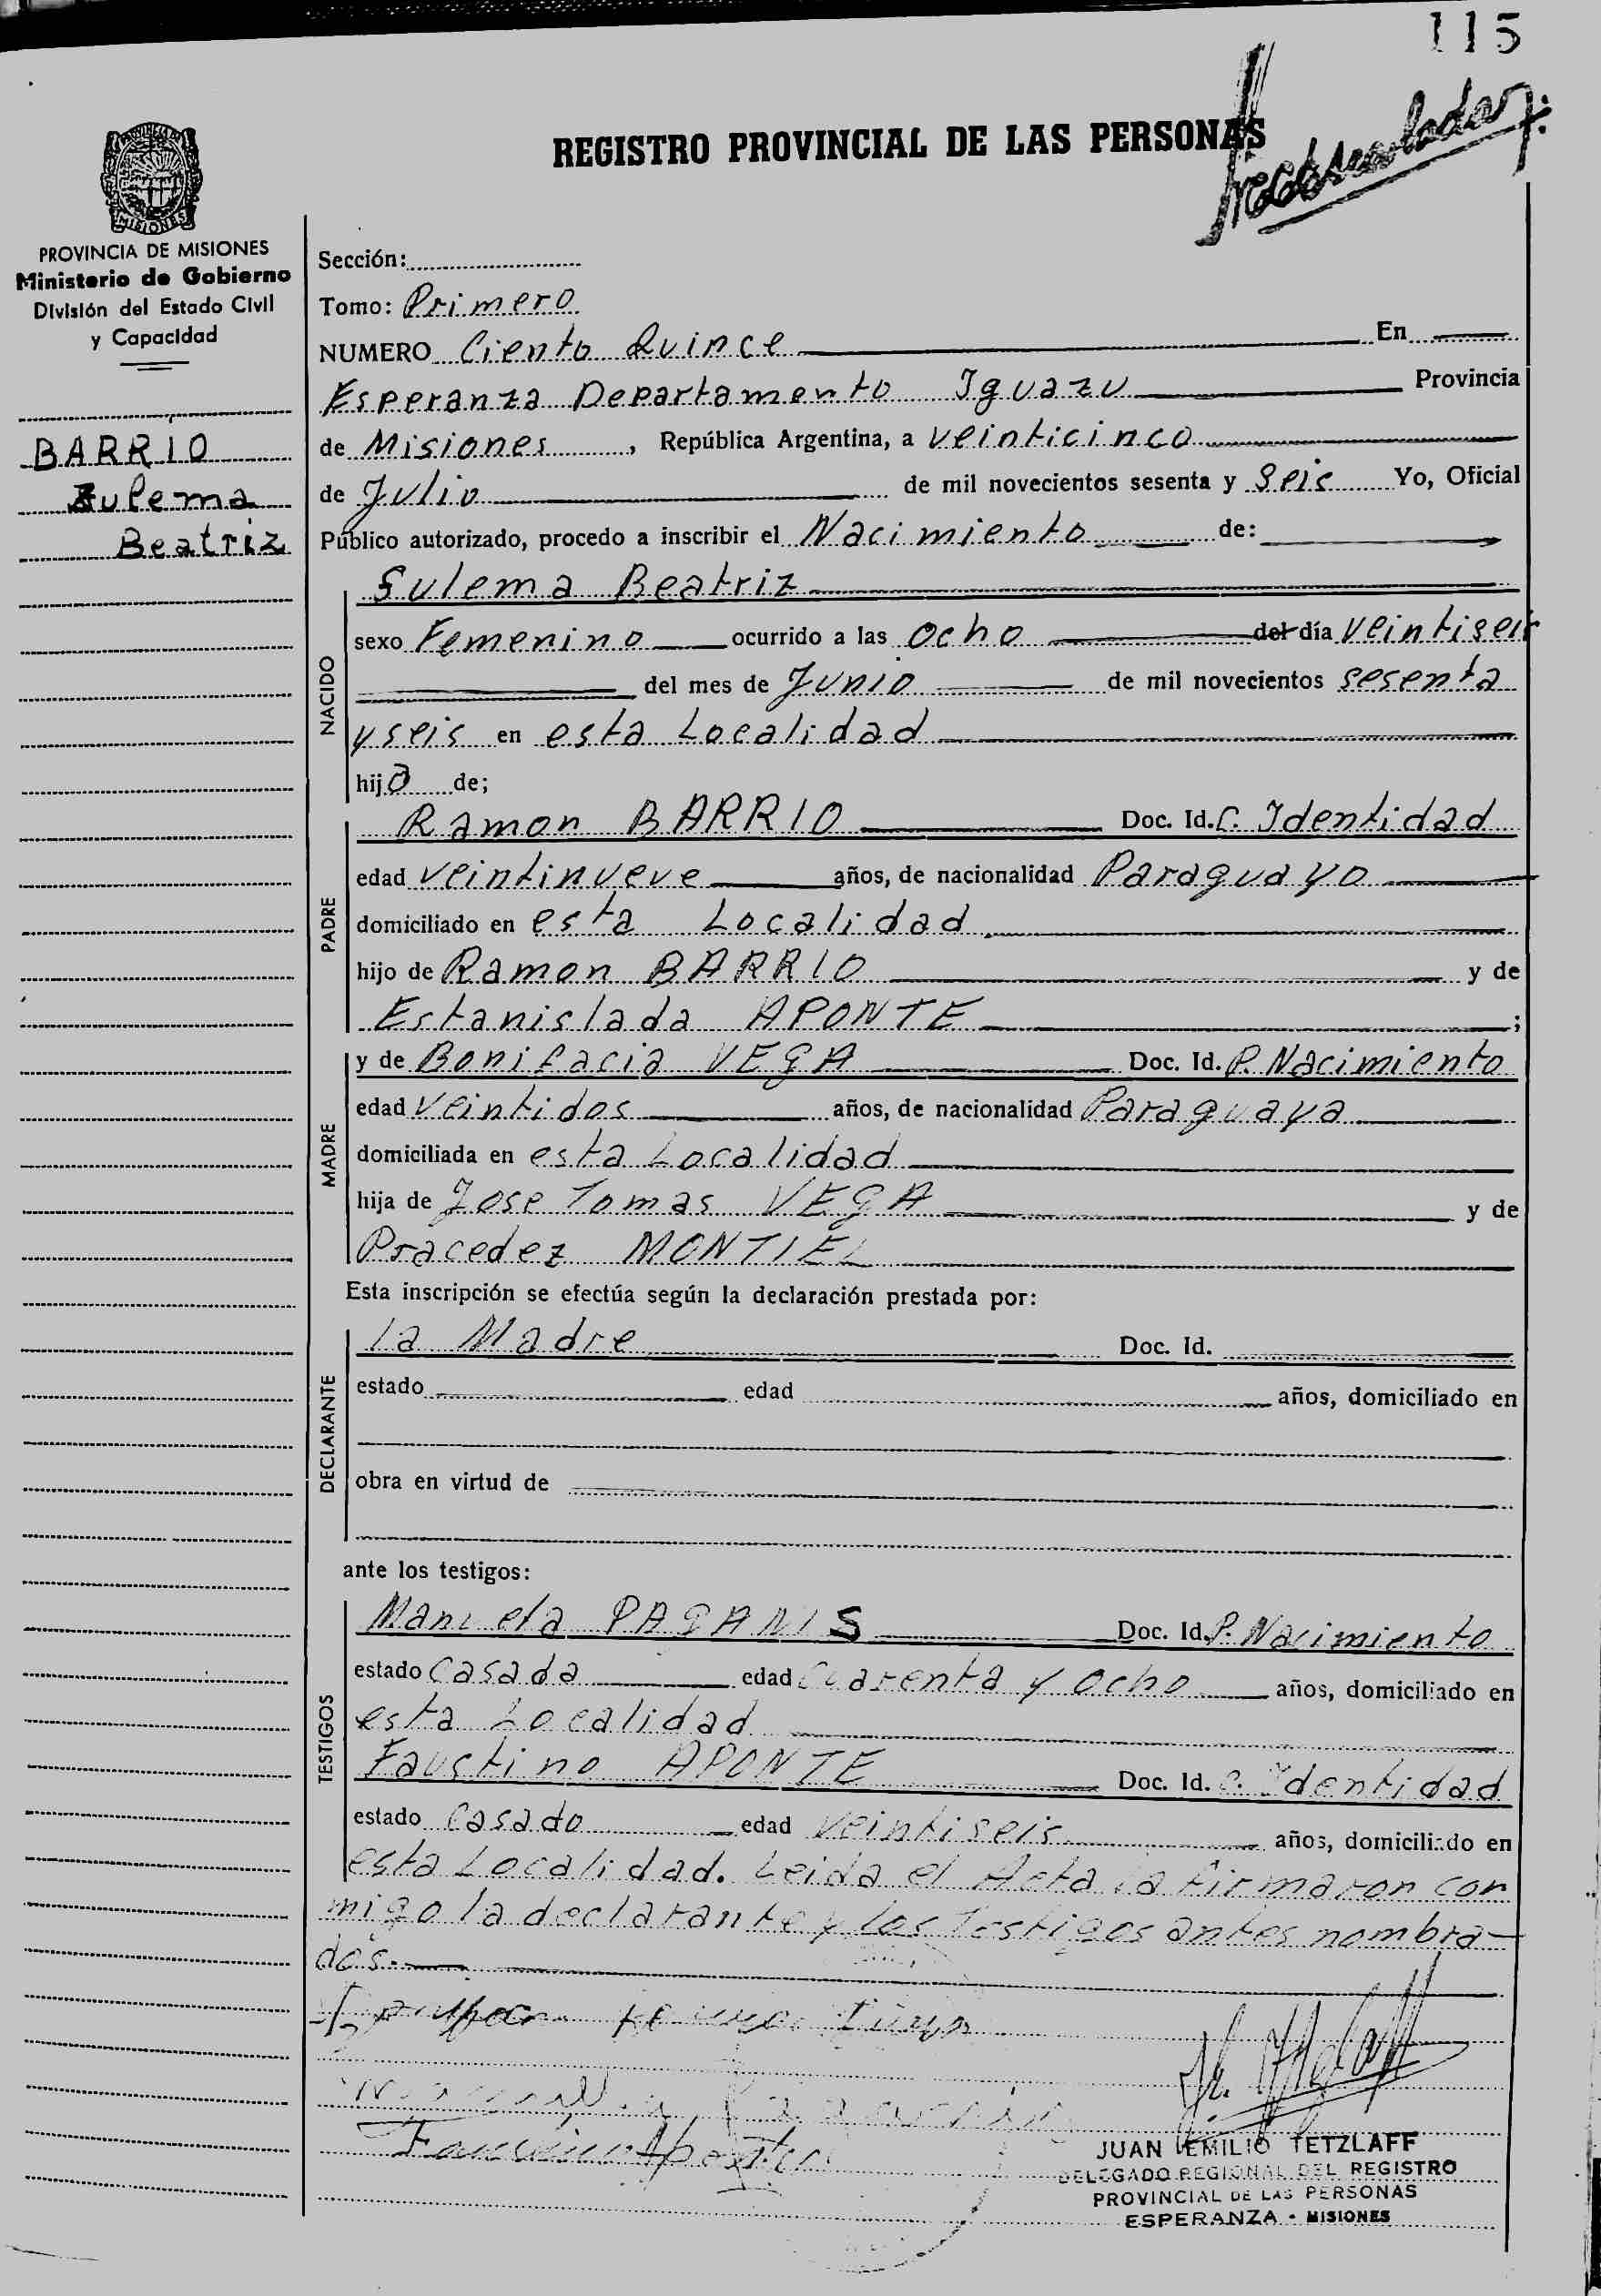 115
REGISTRO PROVINCIAL DE LAS PERSONAS
MISIONES
PROVINCIA DE MISIONES
Ministerio de Gobierno
División del Estado Civil
y Capacidad
BARRIO
Zulema
Beatriz
Sección:
Tomo: Primero
NUMERO Ciento Quince En
Esperanza Departamento Iguazu Provincia
de Misiones, República Argentina, a veinticinco
de Julio de mil novecientos sesenta y Seis Yo, Oficial
Público autorizado, procedo a inscribir el Nacimiento de:
Sulema Beatriz
NACIDO
sexo Femenino ocurrido a las Ocho del día Veintiseis
del mes de Junio de mil novecientos sesenta
y seis en esta Localidad
hija de;
PADRE
Ramon BARRIO Doc. Id. C. Identidad
edad veintinueve años, de nacionalidad Paraguayo
domiciliado en esta Localidad
hijo de Ramon BARRIO y de
Estanislada APONTE ;
MADRE
y de Bonifacia VEGA Doc. Id. P. Nacimiento
edad Veintidos años, de nacionalidad Paraguaya
domiciliada en esta Localidad
hija de Jose Tomas VEGA y de
Pracedez MONTIEL
Esta inscripción se efectúa según la declaración prestada por:
DECLARANTE
la Madre Doc. Id.
estado edad años, domiciliado en
obra en virtud de
ante los testigos:
TESTIGOS
Manuela PAGANIS Doc. Id. P. Nacimiento
estado Casada edad Cuarenta y Ocho años, domiciliado en
esta Localidad
Faustino APONTE Doc. Id. C. Identidad
estado Casado edad Veintiseis años, domiciliado en
esta Localidad. Leida el Acta la firmaron con
migo la declarante y los Testigos antes nombra-
dos.
Faustino Aponte
JUAN EMILIO TETZLAFF
DELEGADO REGIONAL DEL REGISTRO
PROVINCIAL DE LAS PERSONAS
ESPERANZA - MISIONES